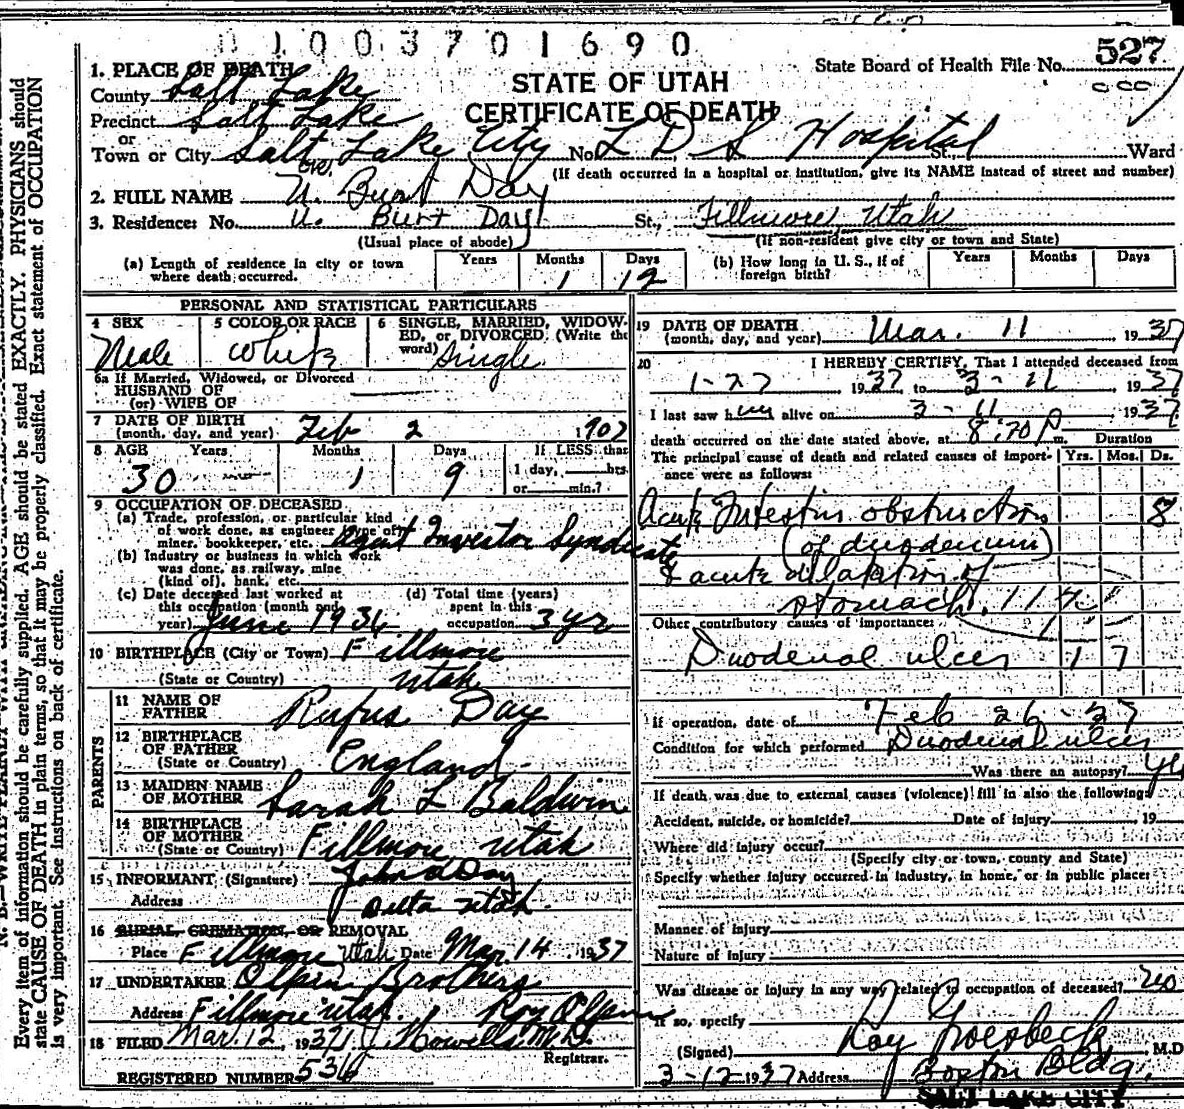 D 1 0 0 3 7 0 1 6 9 0
State Board of Health File No. 527
STATE OF UTAH
CERTIFICATE OF DEATH
1. PLACE OF DEATH
County Salt Lake
Precinct Salt Lake
or
Town or City Salt Lake City No. L D S Hospital St., Ward
(If death occurred in a hospital or institution, give its NAME instead of street and number)
2. FULL NAME U. Burt Day
3. Residence: No. U. Burt Day St., Fillmore, Utah
(Usual place of abode) (If non-resident give city or town and State)
(a) Length of residence in city or town where death occurred. Years Months 1 Days 12
(b) How long in U. S., if of foreign birth? Years Months Days
PERSONAL AND STATISTICAL PARTICULARS
4 SEX Male
5 COLOR OR RACE White
6 SINGLE, MARRIED, WIDOWED, or DIVORCED (Write the word) Single
6a If Married, Widowed, or Divorced
HUSBAND OF
(or) WIFE OF
7 DATE OF BIRTH
(month, day, and year) Feb 2 1907
8 AGE Years 30 Months 1 Days 9 If LESS than 1 day, hrs. or min.?
9 OCCUPATION OF DECEASED
(a) Trade, profession, or particular kind
of work done, as engineer, type of
miner, bookkeeper, etc. Agent Investor Syndicate
(b) Industry or business in which work
was done, as railway, mine
(kind of), bank, etc.
(c) Date deceased last worked at
this occupation (month and
year) June 1936
(d) Total time (years)
spent in this
occupation 3 yr
10 BIRTHPLACE (City or Town) Fillmore
(State or Country) Utah
PARENTS
11 NAME OF
FATHER Rufus Day
12 BIRTHPLACE
OF FATHER
(State or Country) England
13 MAIDEN NAME
OF MOTHER Sarah L Baldwin
14 BIRTHPLACE
OF MOTHER
(State or Country) Fillmore Utah
15 INFORMANT (Signature) John A Day
Address Delta Utah.
16 BURIAL, CREMATION, OR REMOVAL
Place Fillmore Utah Date Mar. 14, 1937
17 UNDERTAKER Olpin Brothers
Address Fillmore Utah. Roy Olpin
18 FILED Mar. 12, 1937 Howells M.D.
Registrar.
REGISTERED NUMBER 536
19 DATE OF DEATH
(month, day, and year) Mar. 11 1937
20 I HEREBY CERTIFY, That I attended deceased from
1-27 1937 to 3-11 1937
I last saw him alive on 3-11 1937
death occurred on the date stated above, at 8:20 P m. Duration
The principal cause of death and related causes of importance were as follows: Yrs. Mos. Ds.
Acute Intestin obstruction 8
(of duodenum)
& acute dilatation of
stomach.
Other contributory causes of importance:
Duodenal ulcer 1 7
If operation, date of Feb 26-37
Condition for which performed Duodenal ulcer
Was there an autopsy? yes
If death was due to external causes (violence) fill in also the following:
Accident, suicide, or homicide? Date of injury 19
Where did injury occur?
(Specify city or town, county and State)
Specify whether injury occurred in industry, in home, or in public place:
Manner of injury
Nature of Injury
Was disease or injury in any way related to occupation of deceased? no
If so, specify
(Signed) Ray Groesbeck M.D.
3-12-1937 Address Boston Bldg.
SALT LAKE CITY
Every item of information should be carefully supplied. AGE should be stated EXACTLY. PHYSICIANS should
state CAUSE OF DEATH in plain terms, so that it may be properly classified. Exact statement of OCCUPATION
is very important. See instructions on back of certificate.